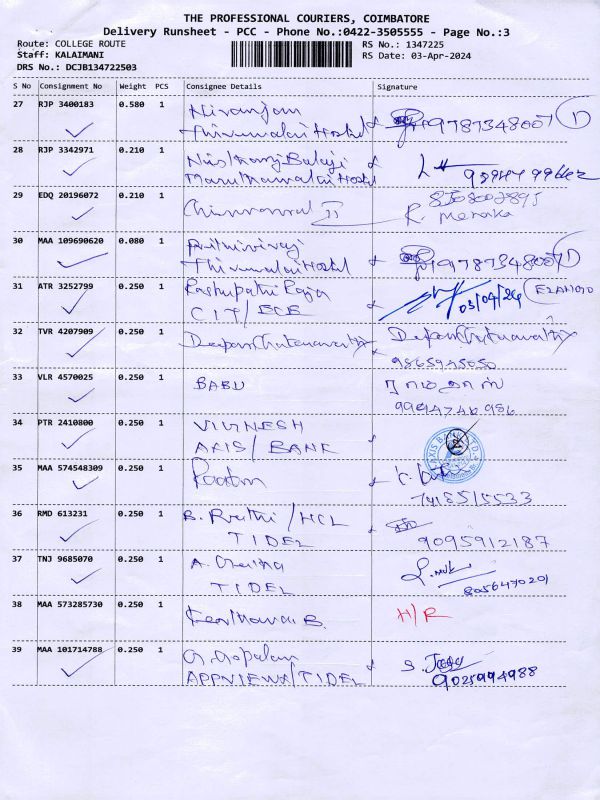 THE PROFESSIONAL COURIERS, COIMBATORE
Delivery Runsheet - PCC - Phone No.:0422-3505555 - Page No.:3
Route: COLLEGE ROUTE
Staff: KALAIMANI
DRS No.: DCJB134722503
RS No.: 1347225
RS Date: 03-Apr-2024
S No Consignment No Weight PCS Consignee Details Signature
27 RJP 3400183 0.580 1 Niranjan 9787348007 1
Thirumalai Hostel
28 RJP 3342971 0.210 1 Balaji
Hostel
29 EDQ 20196072 0.210 1 II
R. Menaka
30 MAA 109690620 0.080 1 9787348007 1
Thirumalai Hostel
31 ATR 3252799 0.250 1 Pashupathi Raja 03/04/24
CIT/ECE
32 TVR 4207909 0.250 1
9865945050
33 VLR 4570025 0.250 1 BABU
34 PTR 2410800 0.250 1 VIGNESH
AXIS/BANK AXIS BANK LTD
35 MAA 574548309 0.250 1
7418515533
36 RMD 613231 0.250 1 B. Preethi/HCL
TIDEL 9095912187
37 TNJ 9685070 0.250 1 A.
TIDEL 8056470201
38 MAA 573285730 0.250 1 B. H/R
39 MAA 101714788 0.250 1 G. Gopalan S.
APPVIEWX/TIDEL 9025994988